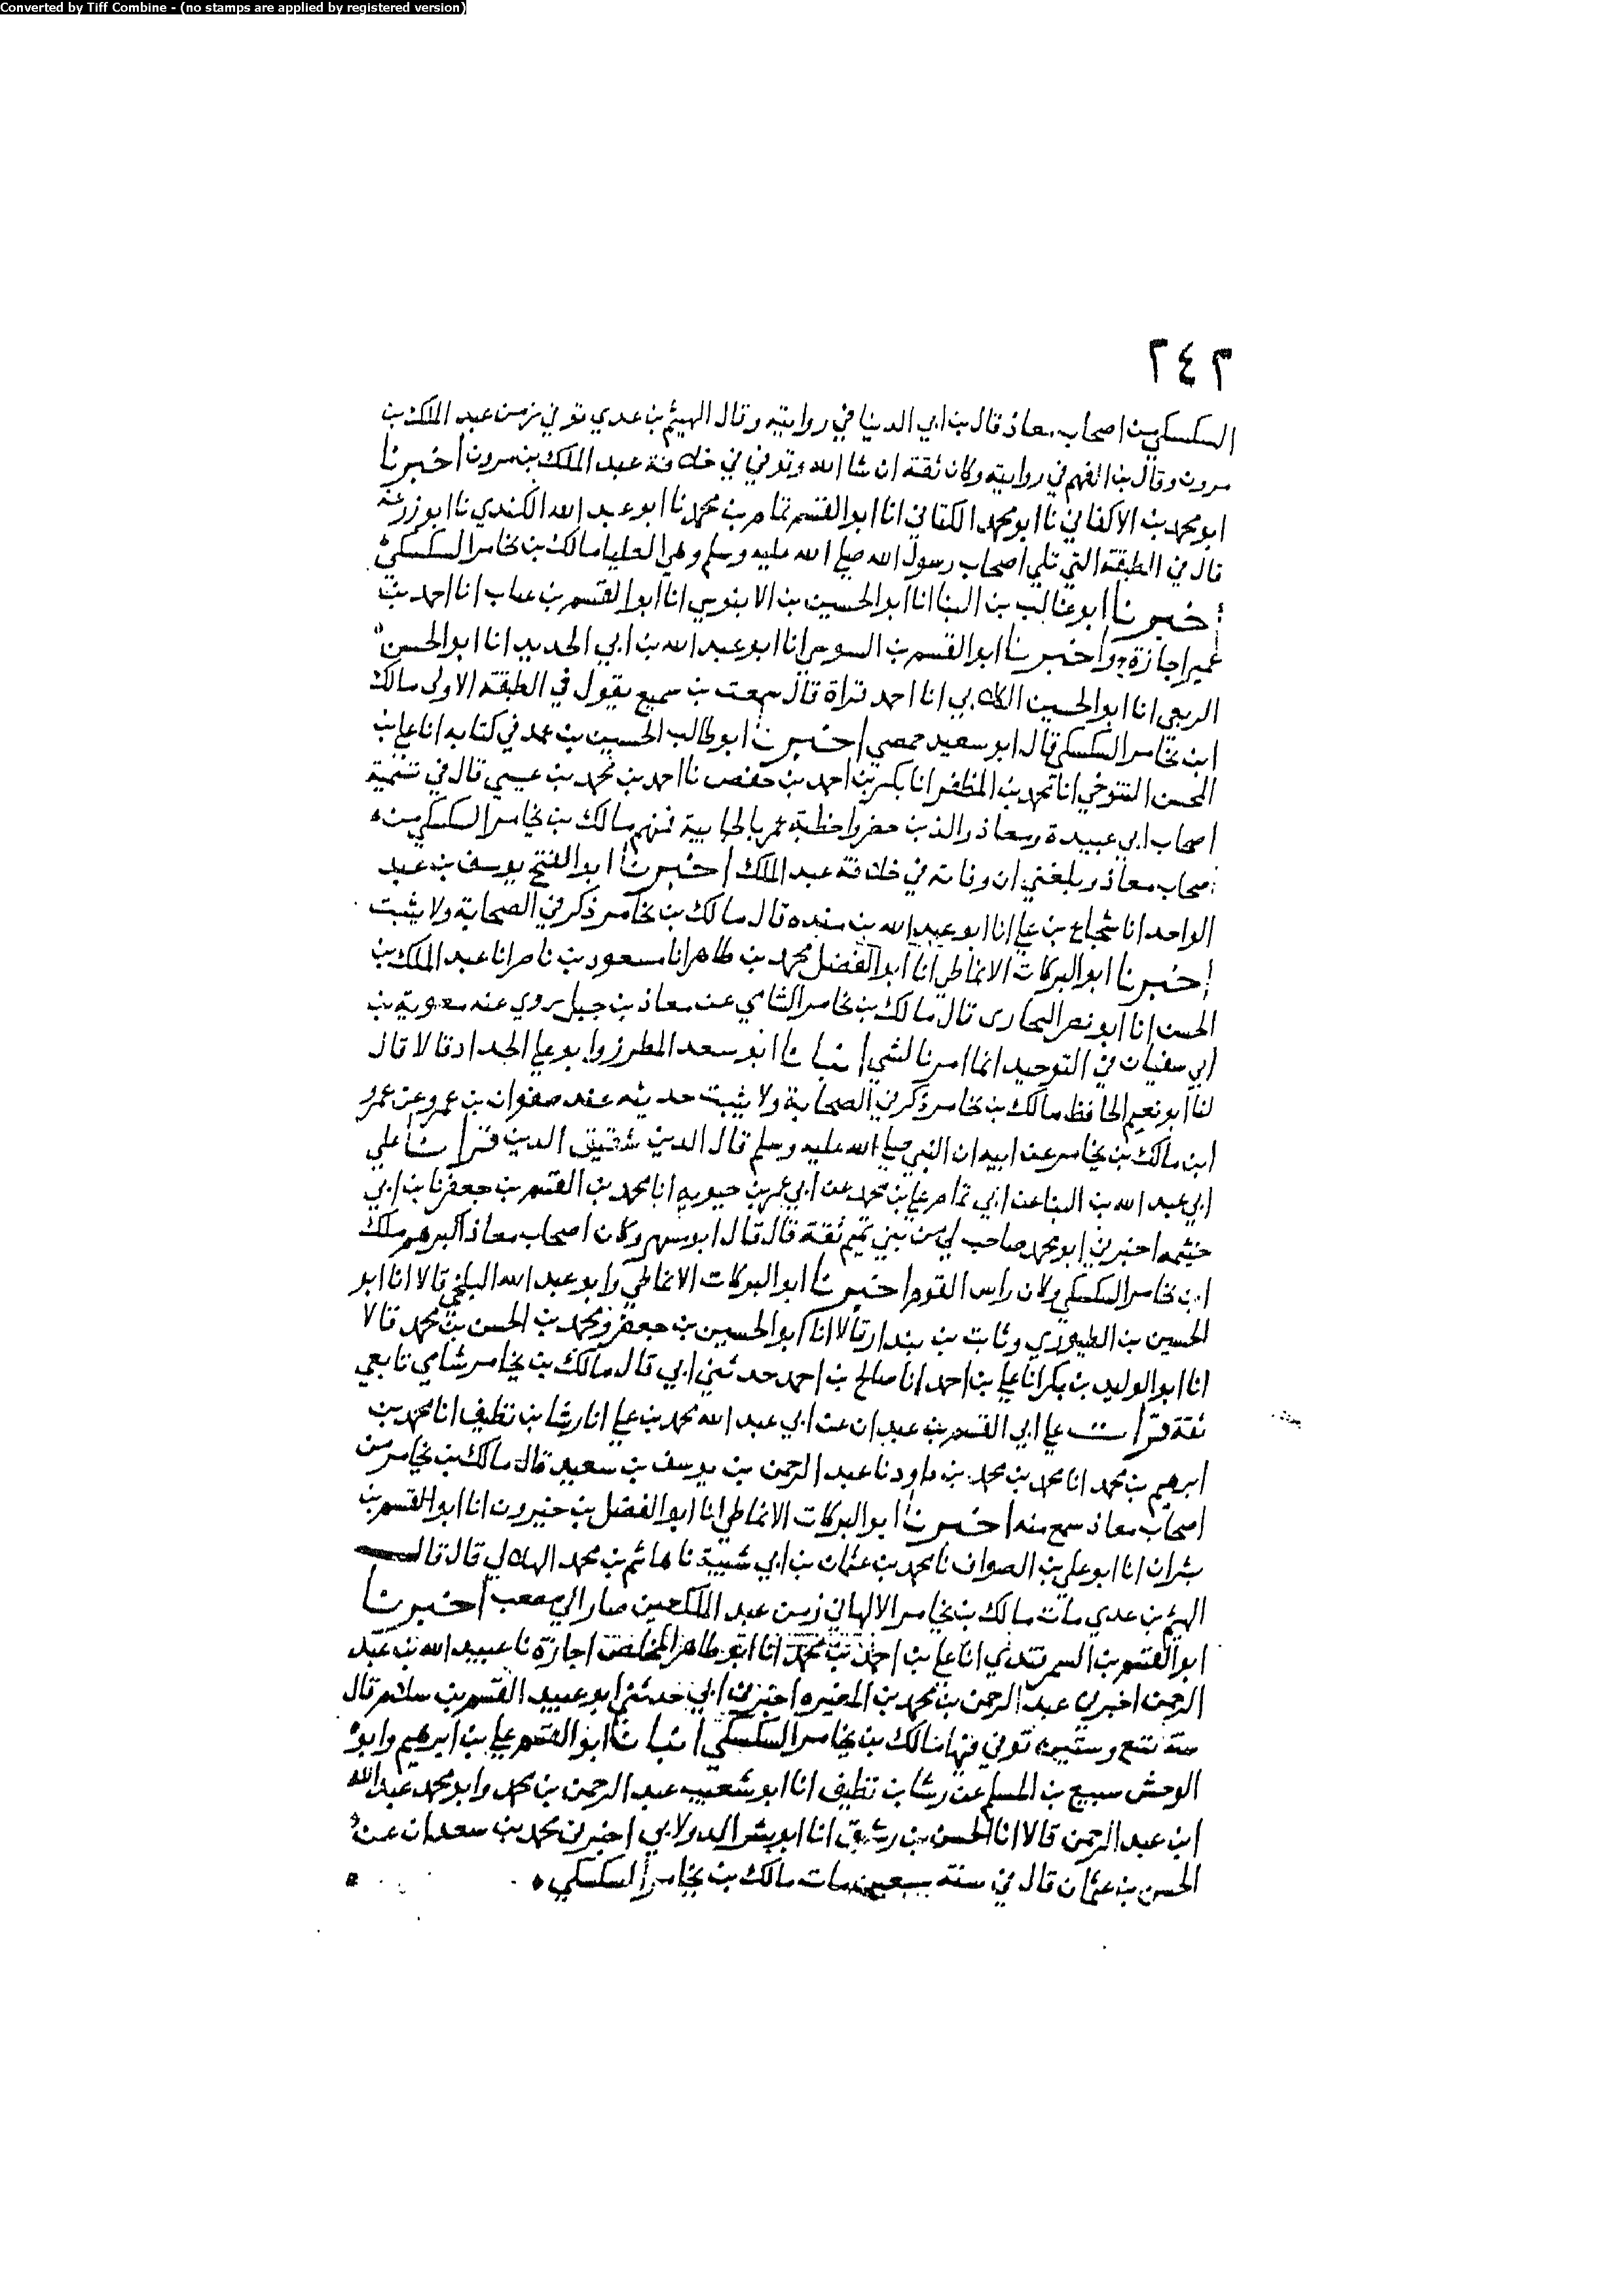 Converted by Tiff Combine - (no stamps are applied by registered version)
٢٤٢
السكسكي من اصحاب معاذ قال بن ابي الدنيا في روايته وقال الهيثم بن عدي توفي زمن عبد الملك بن
مرون وقال بن الفهم في روايته وكان ثقة ان شا الله وتوفي في خلافة عبد الملك بن مرون اخبرنا
ابو محمد بن الاكفاني نا ابو محمد الكتاني انا ابو القسم تمام بن محمد نا ابو عبد الله الكندي نا ابو زرعة
قال في الطبقة التي تلي اصحاب رسول الله صلى الله عليه وسلم وهي العليا مالك بن يخامر السكسكي
اخبرنا ابو غالب بن البنا انا ابو الحسين بن الابنوسي انا ابو القسم بن عتاب انا احمد بن
عمير اجازة واخبرنا ابو القسم بن السوسي انا ابو عبد الله بن ابي الحديد انا ابو الحسن
الربعي انا ابو الحسين الكلابي انا احمد قراة قال سمعت بن سميع يقول في الطبقة الاولى مالك
ابن يخامر السكسكي قال ابو سعيد حمصي اخبرنا ابو طالب الحسين بن محمد في كتابه انا علي بن
المحسن التنوخي انا محمد بن المظفر انا بكر بن احمد بن حفص نا احمد بن محمد بن عيسى قال في تسمية
اصحاب ابي عبيدة ومعاذ والذين حضروا خطبة عمر بالجابية فمنهم مالك بن يخامر السكسكي من
اصحاب معاذ وبلغني ان وفاته في خلافة عبد الملك اخبرنا ابو الفتح يوسف بن عبد
الواحد انا شجاع بن علي انا ابو عبد الله بن منده قال مالك بن يخامر ذكر في الصحابة ولا يثبت
اخبرنا ابو البركات الانماطي انا ابو الفضل محمد بن طاهر انا مسعود بن ناصر انا عبد الملك بن
الحسن انا ابو نصر البخاري قال مالك بن يخامر الشامي عن معاذ بن جبل روى عنه معوية بن
ابي سفيان في التوحيد انما امرنا لشي انبانا ابو سعد المطرز وابو علي الحداد قالا قال
لنا ابو نعيم الحافظ مالك بن يخامر ذكر في الصحابة ولا يثبت حديثه عند صفوان بن عمرو عن عمرو
ابن مالك بن يخامر عن ابيه ان النبي صلى الله عليه وسلم قال الدين شقيق الدين قرات على
ابي عبد الله بن البنا عن ابي تمام علي بن محمد عن ابي عمر بن حيويه انا محمد بن القسم بن جعفر نا بن ابي
خيثمه اخبرني ابو محمد صاحب لي من بني تميم ثقة قال قال ابو مسهر وكان اصحاب معاذ اكبرهم ملك
ابن يخامر السكسكي وكان راس القوم اخبرنا ابو البركات الانماطي وابو عبد الله البلخي قالا انا ابو
الحسين بن الطيوري وثابت بن بندار قالا انا ابو الحسين بن جعفر ومحمد بن الحسن بن محمد قالا
انا ابو الوليد بن بكر انا علي بن احمد انا صالح بن احمد حدثني ابي قال مالك بن يخامر شامي تابعي
ثقة قرات على ابي القسم بن عبدان عن ابي عبد الله محمد بن علي انا رشا بن نظيف انا محمد بن
ابرهيم بن محمد انا محمد بن محمد بن داود نا عبد الرحمن بن يوسف بن سعيد قال مالك بن يخامر من
اصحاب معاذ سمع منه اخبرنا ابو البركات الانماطي انا ابو الفضل بن خيرون انا ابو القسم بن
بشران انا ابو علي بن الصواف نا محمد بن عثمان بن ابي شيبة نا هاشم بن محمد الهلالي قال قال
الهيثم بن عدي مات مالك بن يخامر الالهاني زمن عبد الملك حين صار الى مصعب اخبرنا
ابو القسم بن السمرقندي انا علي بن احمد بن محمد انا ابو طاهر المخلص اجازة نا عبيد الله بن عبد
الرحمن اخبرني عبد الرحمن بن محمد بن المغيره اخبرني ابي حدثني ابو عبيد القسم بن سلام قال
سنة تسع وستين توفي فيها مالك بن يخامر السكسكي انبانا ابو القسم علي بن ابرهيم وابو
الوحش سبيع بن المسلم عن رشا بن نظيف انا ابو شعيب عبد الرحمن بن محمد وابو محمد عبد الله
ابن عبد الرحمن قالا انا الحسن بن رشيق انا ابو بشر الدولابي اخبرني محمد بن سعدان عن
الحسن بن عثمان قال في سنة سبعين مات مالك بن يخامر السكسكي